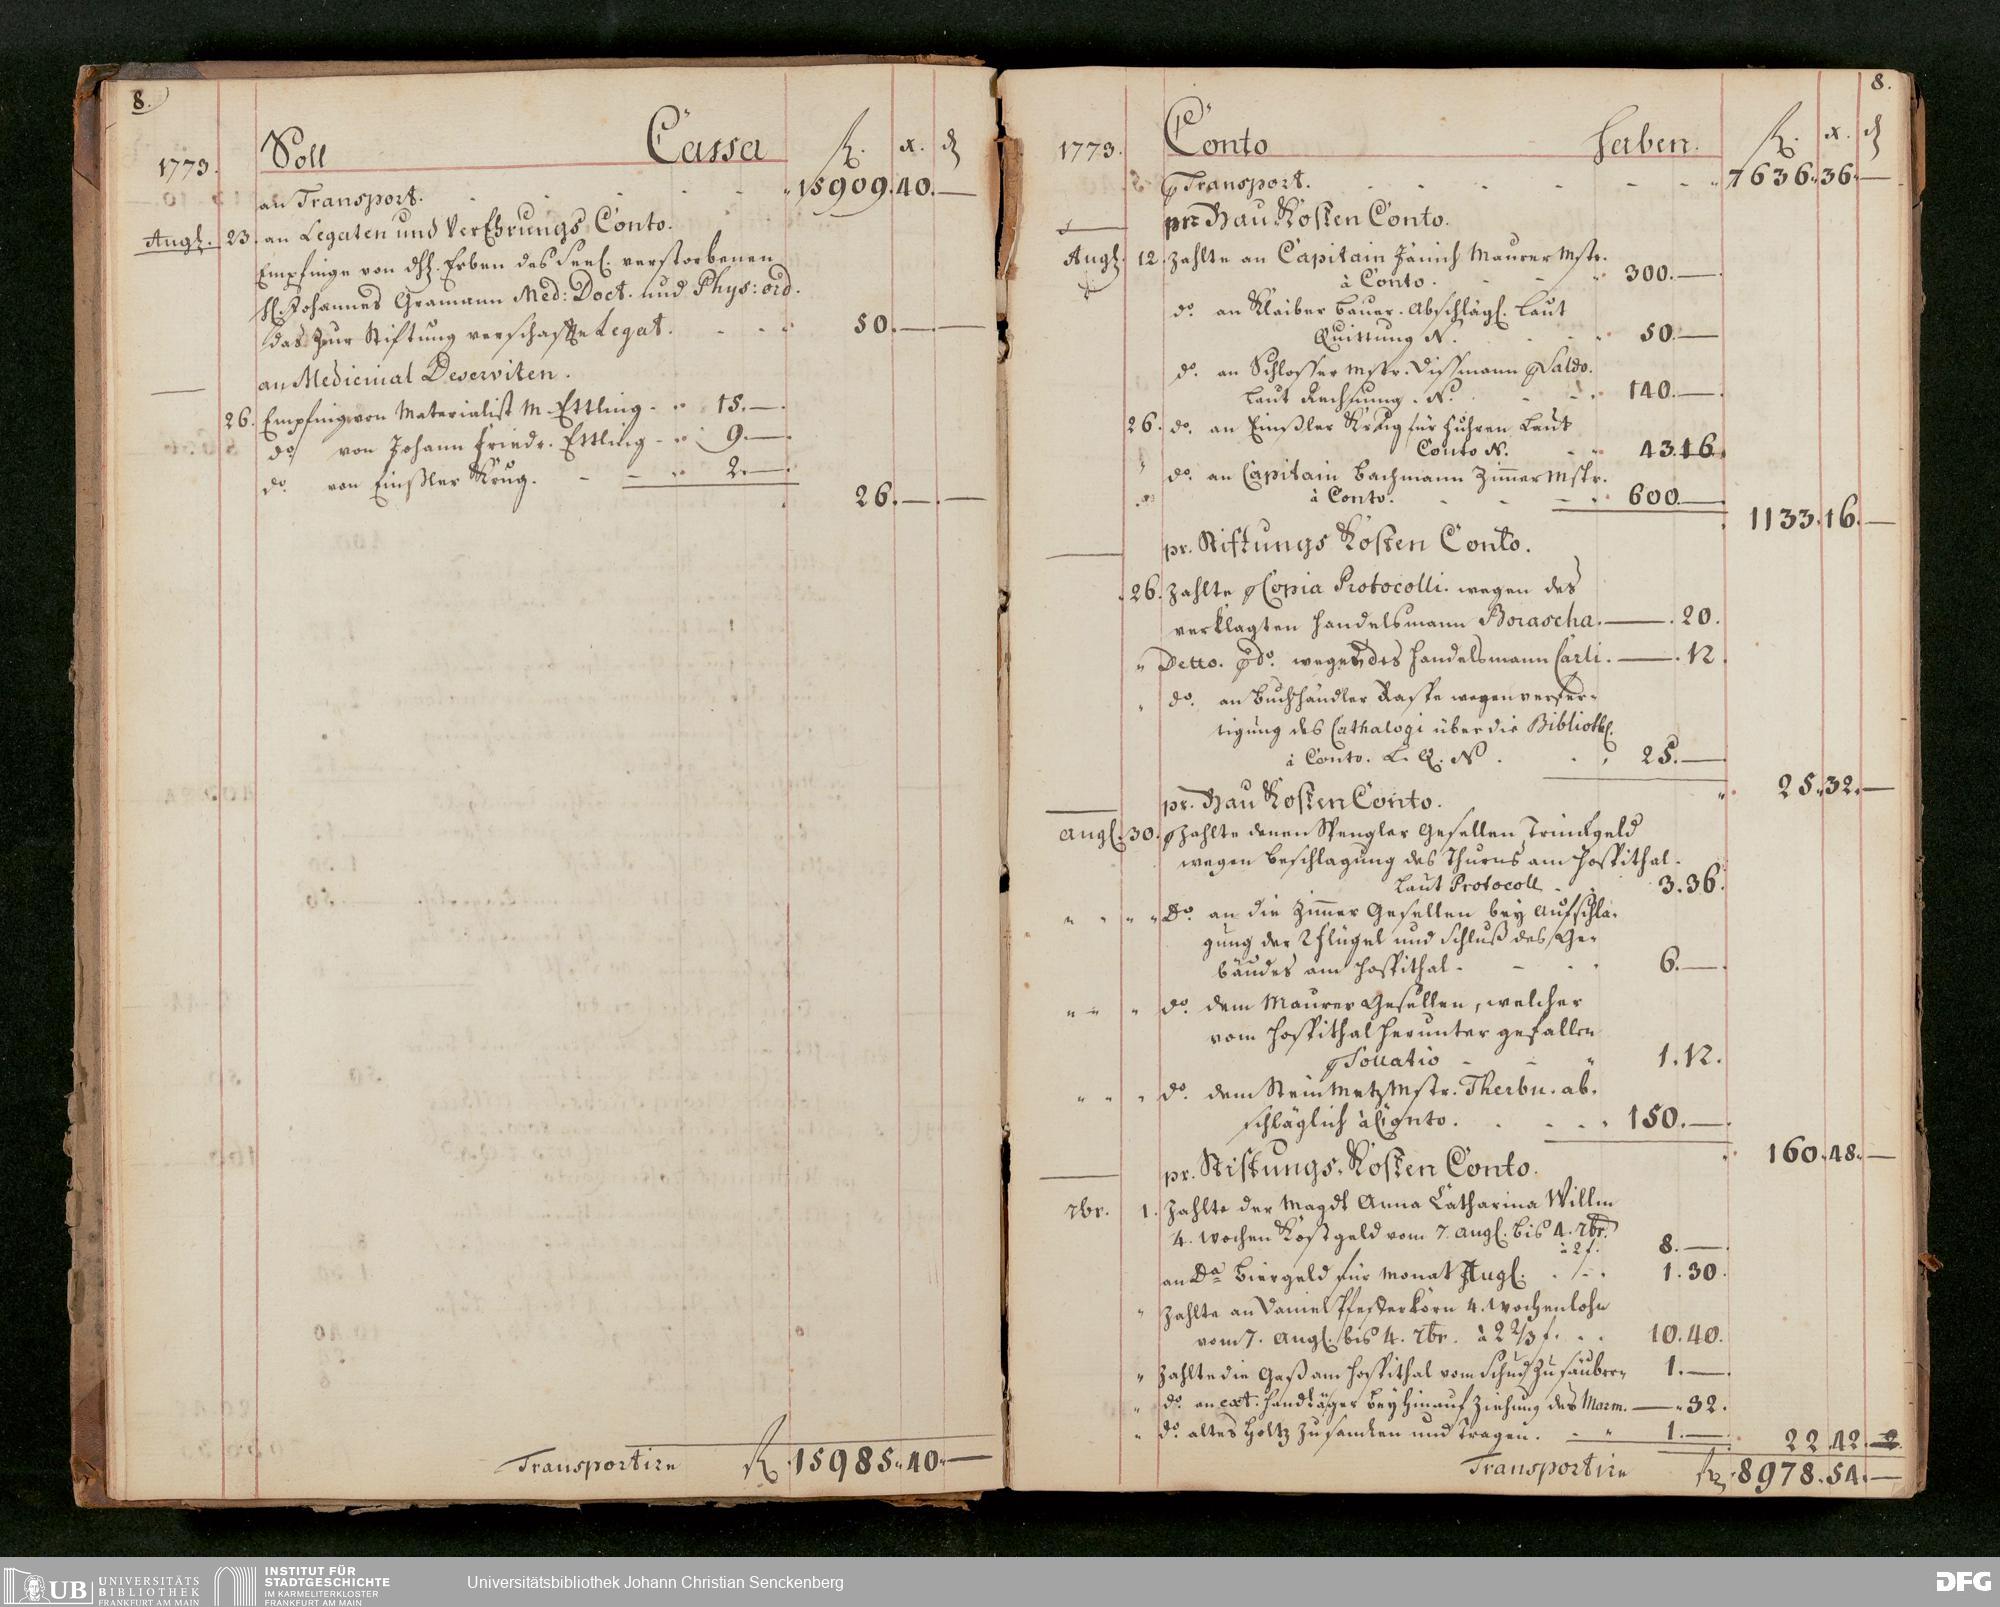 8.
1773. Soll Cassa f. x. ₰
an Transport. 15909. 40. —
Augst. 23. an Legaten und VerEhrungs Conto.
Empfinge von dhh. Erben des Seel. verstorbenen
H. Johannes Gramann Med: Doct. und Phys: ord.
das Zur Stiftung verschaffte Legat. 50. — —
an Medicinal Deserviten.
26. Empfing von Materialist M. Ettling - 15. —
do von Johann Friedr. Ettling - 9. —
do. von Einßler Krug. - - 2. —
26. — —
Transportire f 15985. 40. —
8.
1773. Conto Haben. f. x. ₰
Transport. 7636. 36. —
pr. Bau Kosten Conto.
Augst. 12. Zahlte an Capitain Jänich Maurer Mstr.
à Conto. 300. —
do. an Kleiber Bauer. Abschlägl. Laut
Quittung N. 50. —
do. an Schlosser Mstr. Dissmann Saldo.
Laut Rechnung. N. 140. —
26. do. an Einßler Krug für Fuhren Laut
Conto N. 43. 16.
" do. an Capitain Bachmann Zimmer Mstr.
à Conto. 600. —
1133. 16. —
pr. Stiftungs Kosten Conto.
26. Zahlte Copia Protocolli. wegen des
verklagten Handelsmann Borascha. — . 20.
" Detto. do. wegen des Handelsmann Carli. — . 12
" do. an Buchhändler Raspe wegen verfer-
tigung des Cathalogi über die Biblioth.
à Conto. L. Q. N. 25. —
25. 32. —
pr. Bau Kosten Conto.
Augst. 30. Zahlte denen Spengler Gesellen Trinckgeld
wegen Beschlagung des Thurns am Hospithal.
Laut Protocoll. 3. 36.
" " " " Do. an die Zimmer Gesellen bey Aufschla-
gung der 2 flügel und Schluß des Ge-
bäudes am Hospithal. - 6. —
" " " do. dem Maurer Gesellen, welcher
vom Hospithal herunter gefallen
Sollatio - - 1. 12.
" " " do. dem Stein Metz Mstr. Therbu. ab.
schläglich à Conto. 150. —
160. 48. —
pr. Stiftungs. Kosten Conto.
7br. 1. Zahlte der Magdt Anna Catharina Willm
4. Wochen Kostgeld vom 7. Augst. bis 4. 7br.
à 2 f. 8. —
an Da Biergeld für Monat Augst. 1. 30.
" Zahlte an Daniel Pfefferkorn 4. Wochenlohn
vom 7. Augst. bis 4. 7br. à 2 2/3 f. 10. 40.
" Zahlte die Gaß am Hospithal vom Schud Zu säubern 1. —
" do. an ext: Handläger bey hinauf Ziehung des Marm. — " 32.
" do. altes Holtz Zusamlen und Tragen. - " 1. —
22 42
Transportire f 8978. 54. —
UB UNIVERSITÄTS
BIBLIOTHEK
FRANKFURT AM MAIN
INSTITUT FÜR
STADTGESCHICHTE
IM KARMELITERKLOSTER
FRANKFURT AM MAIN
Universitätsbibliothek Johann Christian Senckenberg
DFG